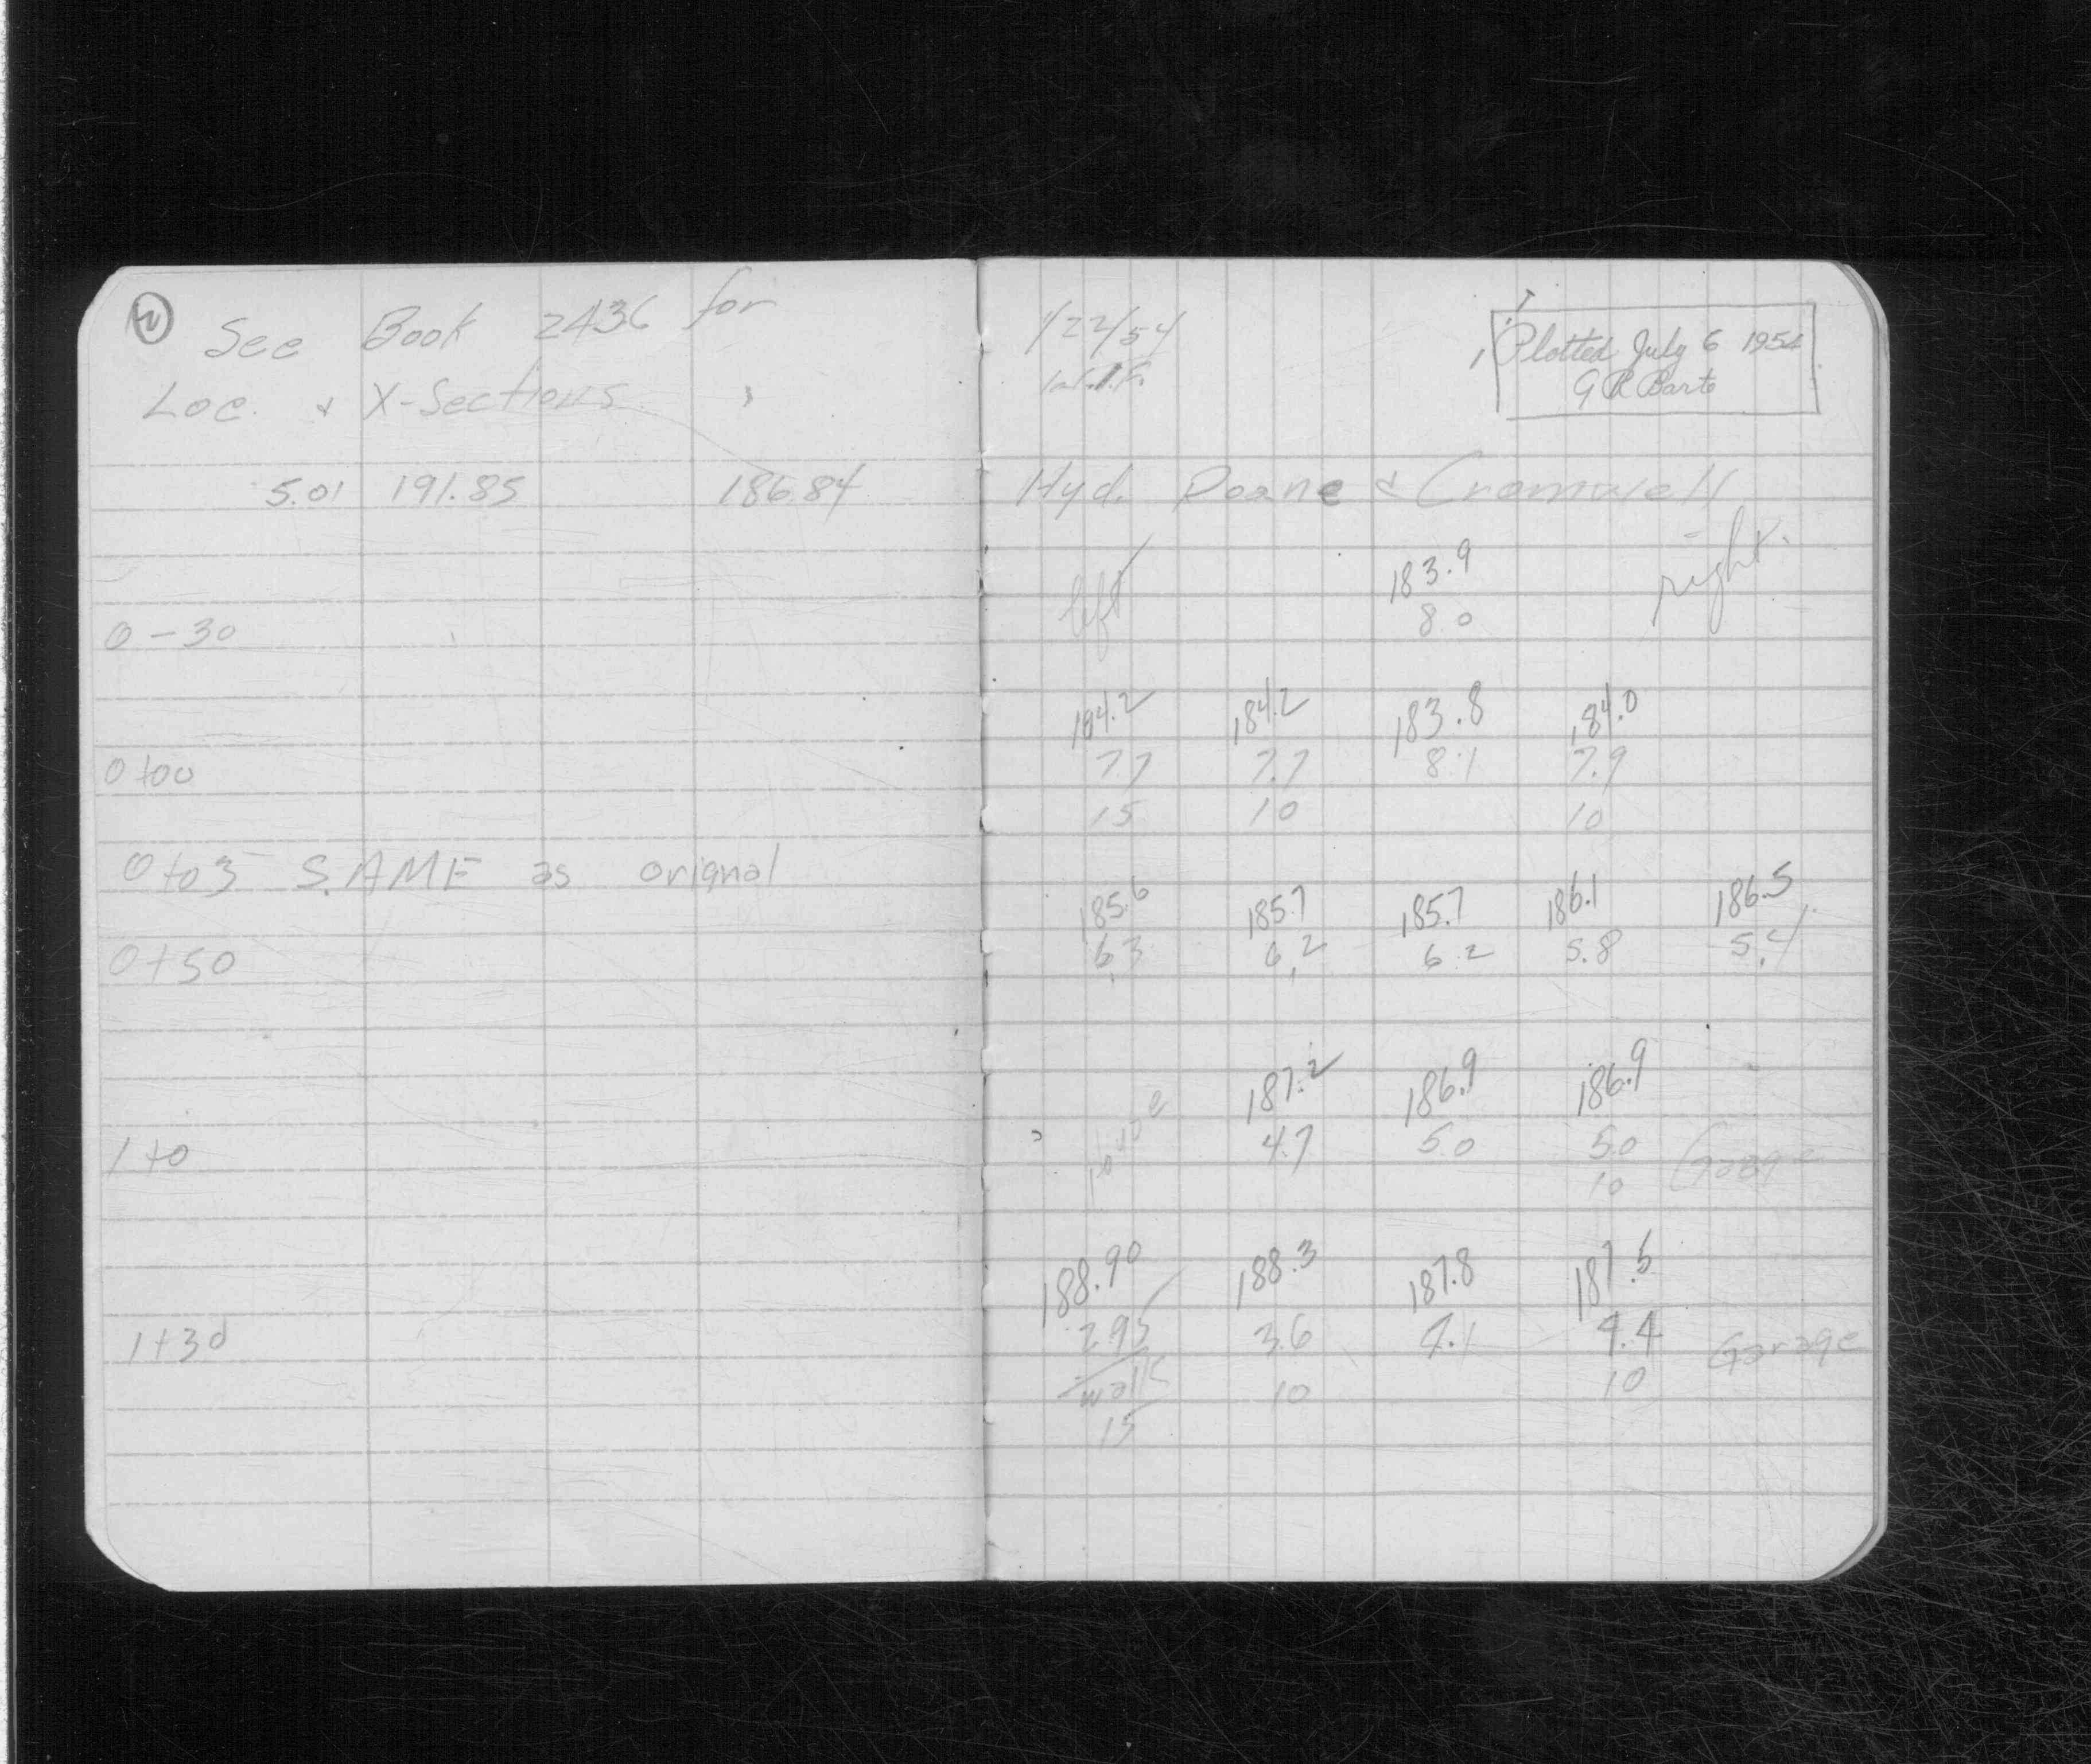 2
See Book 2436 for
Loc. & X-Sections
5.01 191.85 186.84
0-30
0+00
0+03 SAME as orignal
0+50
1+0
1+30
1/22/54
Plotted July 6 1954
G R Barto
Hyd. Doane & Cromwell
left 183.9 right
8.0
184.2 184.2 183.8 184.0
7.7 7.7 8.1 7.9
15 10 10
185.6 185.7 185.7 186.1 186.5
6.3 6.2 6.2 5.8 5.4
187.2 186.9 186.9
house 4.7 5.0 5.0
10
188.90 188.3 187.8 187.5
2.95 3.6 4.1 4.4 Garage
walk 10 10
15